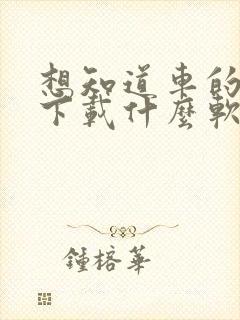 想知道車的
下載什麼軟
鍾榕華